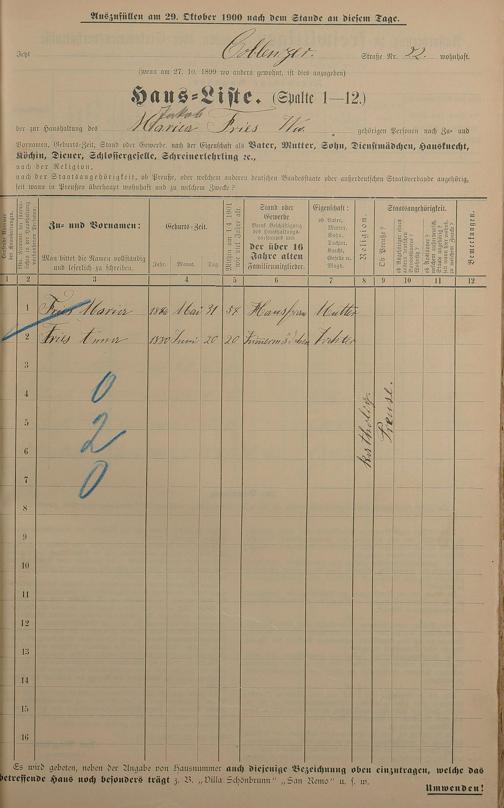 Auszufüllen am 29. Oktober 1900 nach dem Stande an diesem Tage.
Jetzt Coblenzer. Straße Nr. 22. wohnhaft.
(wenn am 27. 10. 1899 wo anders gewohnt, ist dies anzugeben)
Haus-Liste. (Spalte 1—12.)
Jakob
der zur Haushaltung des Maria Fries Ww. gehörigen Personen nach Zu- und
Vornamen, Geburts-Zeit, Stand oder Gewerbe, nach der Eigenschaft als Vater, Mutter, Sohn, Dienstmädchen, Hausknecht,
Köchin, Diener, Schlossergeselle, Schreinerlehrling ꝛc.,
nach der Religion,
nach der Staatsangehörigkeit, ob Preuße, oder welchem anderen deutschen Bundesstaate oder außerdeutschen Staatsverbande angehörig,
seit wann in Preußen überhaupt wohnhaft und zu welchem Zwecke?
Zu- und Vornamen:
Man bittet die Namen vollständig
und leserlich zu schreiben.
Geburts-Zeit.
Jahr. Monat. Tag.
Stand oder
Gewerbe
der über 16
Jahre alten
Familienmitglieder.
Eigenschaft:
ob Vater,
Mutter,
Sohn,
Tochter,
Koch,
Knecht,
Geselle u.
Magd.
Religion.
Staatsangehörigkeit.
Ob Preuße?
Bemerkungen.
1 2 3 4 5 6 7 8 9 10 11 12
1 Fries Maria Mai 31 54 Hausfrau Mutter
2 Fries Anna 1880 Juni 20 20 Tochter
katholisch
Preuse.
3
4
5
6
7
8
9
10
11
12
13
14
15
16
0
2
0
Es wird gebeten, neben der Angabe von Hausnummer auch diejenige Bezeichnung oben einzutragen, welche das
betreffende Haus noch besonders trägt z. B. „Villa Schönbrunn“ „San Remo“ u. s. w.
Umwenden!